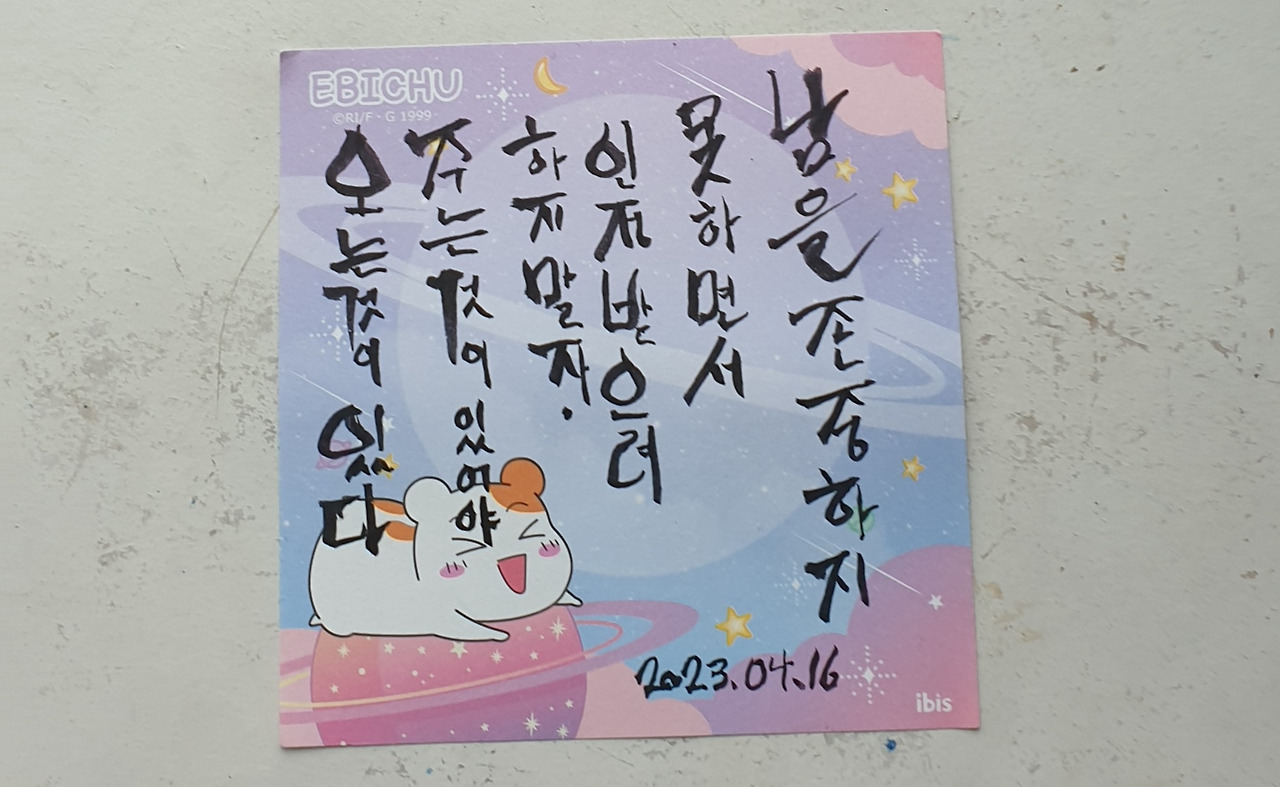 EBICHU
©RI/F・G 1999
남을 존중하지
못하면서
인정받으려
하지말자.
주는것이 있어야
오는것이 있다
2023.04.16
ibis